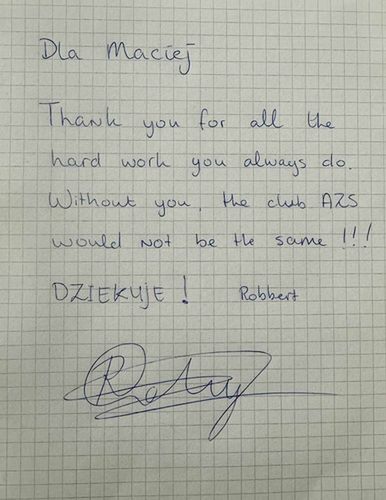 Dla Maciej
Thank you for all the
hard work you always do.
Without you, the club AZS
would not be the same !!!
DZIEKUJE ! Robbert